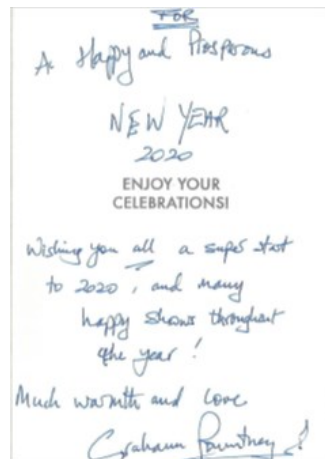 FOR
A Happy and Prosperous
NEW YEAR
2020
ENJOY YOUR
CELEBRATIONS!
Wishing you all a super start
to 2020, and many
happy shows throughout
the year!
Much warmth and love
Graham Pountney